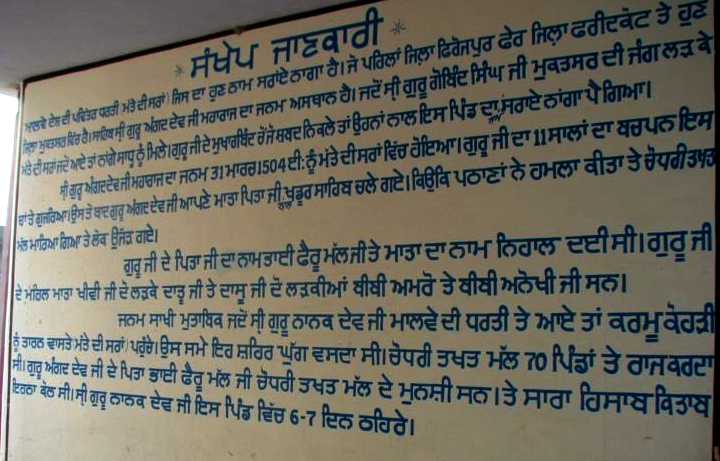 * ਸੰਖੇਪ ਜਾਣਕਾਰੀ *
ਮਾਲਵੇ ਦੇਸ ਦੀ ਪਵਿੱਤਰ ਧਰਤੀ (ਮੱਤੇ ਦੀ ਸਰਾਂ) ਜਿਸ ਦਾ ਹੁਣ ਨਾਮ ਸਰਾਂਏ ਨਾਗਾ ਹੈ। ਜੋ ਪਹਿਲਾਂ ਜਿਲ੍ਹਾ ਫਿਰੋਜਪੁਰ ਫੇਰ ਜਿਲ੍ਹਾ ਫਰੀਦਕੋਟ ਤੇ ਹੁਣ
ਜਿਲ੍ਹਾ ਮੁਕਤਸਰ ਵਿੱਚ ਹੈ। ਸਾਹਿਬ ਸ੍ਰੀ ਗੁਰੂ ਅੰਗਦ ਦੇਵ ਜੀ ਮਹਾਰਾਜ ਦਾ ਜਨਮ ਅਸਥਾਨ ਹੈ। ਜਦੋਂ ਸ੍ਰੀ ਗੁਰੂ ਗੋਬਿੰਦ ਸਿੰਘ ਜੀ ਮੁਕਤਸਰ ਦੀ ਜੰਗ ਲੜ ਕੇ
ਮੱਤੇ ਦੀ ਸਰਾਂ ਜਦੋਂ ਆਏ ਤਾਂ ਨਾਗੇ ਸਾਧੂ ਨੂੰ ਮਿਲੇ। ਗੁਰੂ ਜੀ ਦੇ ਮੁਖਾਰਬਿੰਦ ਚੋਂ ਜੋ ਸ਼ਬਦ ਨਿਕਲੇ ਤਾਂ ਉਹਨਾਂ ਨਾਲ ਇਸ ਪਿੰਡ ਦਾ ਸਰਾਏ ਨਾਂਗਾ ਪੈ ਗਿਆ।
ਸ੍ਰੀ ਗੁਰੂ ਅੰਗਦ ਦੇਵ ਜੀ ਮਹਾਰਾਜ ਦਾ ਜਨਮ 31 ਮਾਰਚ 1504 ਈ: ਨੂੰ ਮੱਤੇ ਦੀ ਸਰਾਂ ਵਿੱਚ ਹੋਇਆ। ਗੁਰੂ ਜੀ ਦਾ 11 ਸਾਲਾਂ ਦਾ ਬਚਪਨ ਇਸ
ਥਾਂ ਤੇ ਗੁਜਰਿਆ। ਉਸ ਤੋਂ ਬਾਦ ਗੁਰੂ ਅੰਗਦ ਦੇਵ ਜੀ ਆਪਣੇ ਮਾਤਾ ਪਿਤਾ ਜੀ ਖਡੂਰ ਸਾਹਿਬ ਚਲੇ ਗਏ। ਕਿਉਂਕਿ ਪਠਾਣਾਂ ਨੇ ਹਮਲਾ ਕੀਤਾ ਤੇ ਚੋਧਰੀ ਤਖਤ
ਮੱਲ ਮਾਰਿਆ ਗਿਆ ਤੇ ਲੋਕ ਉੱਜੜ ਗਏ।
ਗੁਰੂ ਜੀ ਦੇ ਪਿਤਾ ਜੀ ਦਾ ਨਾਮ ਭਾਈ ਫੈਰੂ ਮੱਲ ਜੀ ਤੇ ਮਾਤਾ ਦਾ ਨਾਮ ਨਿਹਾਲ ਦਈ ਸੀ। ਗੁਰੂ ਜੀ
ਦੇ ਮਹਿਲ ਮਾਤਾ ਖੀਵੀ ਜੀ ਦੋ ਲੜਕੇ ਦਾਤੂ ਜੀ ਤੇ ਦਾਸੂ ਜੀ ਦੋ ਲੜਕੀਆਂ ਬੀਬੀ ਅਮਰੋ ਤੇ ਬੀਬੀ ਅਨੋਖੀ ਜੀ ਸਨ।
ਜਨਮ ਸਾਖੀ ਮੁਤਾਬਿਕ ਜਦੋਂ ਸ੍ਰੀ ਗੁਰੂ ਨਾਨਕ ਦੇਵ ਜੀ ਮਾਲਵੇ ਦੀ ਧਰਤੀ ਤੇ ਆਏ ਤਾਂ ਕਰਮੂ ਕੋਹੜੀ
ਨੂੰ ਤਾਰਨ ਵਾਸਤੇ ਮੱਤੇ ਦੀ ਸਰਾਂ ਪਹੁੰਚੇ। ਉਸ ਸਮੇਂ ਇਹ ਸ਼ਹਿਰ ਘੁੱਗ ਵਸਦਾ ਸੀ। ਚੋਧਰੀ ਤਖਤ ਮੱਲ 70 ਪਿੰਡਾਂ ਤੇ ਰਾਜ ਕਰਦਾ
ਸੀ। ਗੁਰੂ ਅੰਗਦ ਦੇਵ ਜੀ ਦੇ ਪਿਤਾ ਭਾਈ ਫੈਰੂ ਮੱਲ ਜੀ ਚੋਧਰੀ ਤਖਤ ਮੱਲ ਦੇ ਮੁਨਸ਼ੀ ਸਨ। ਤੇ ਸਾਰਾ ਹਿਸਾਬ ਕਿਤਾਬ
ਇਹਨਾ ਕੋਲ ਸੀ। ਸ੍ਰੀ ਗੁਰੂ ਨਾਨਕ ਦੇਵ ਜੀ ਇਸ ਪਿੰਡ ਵਿੱਚ 6-7 ਦਿਨ ਠਹਿਰੇ।